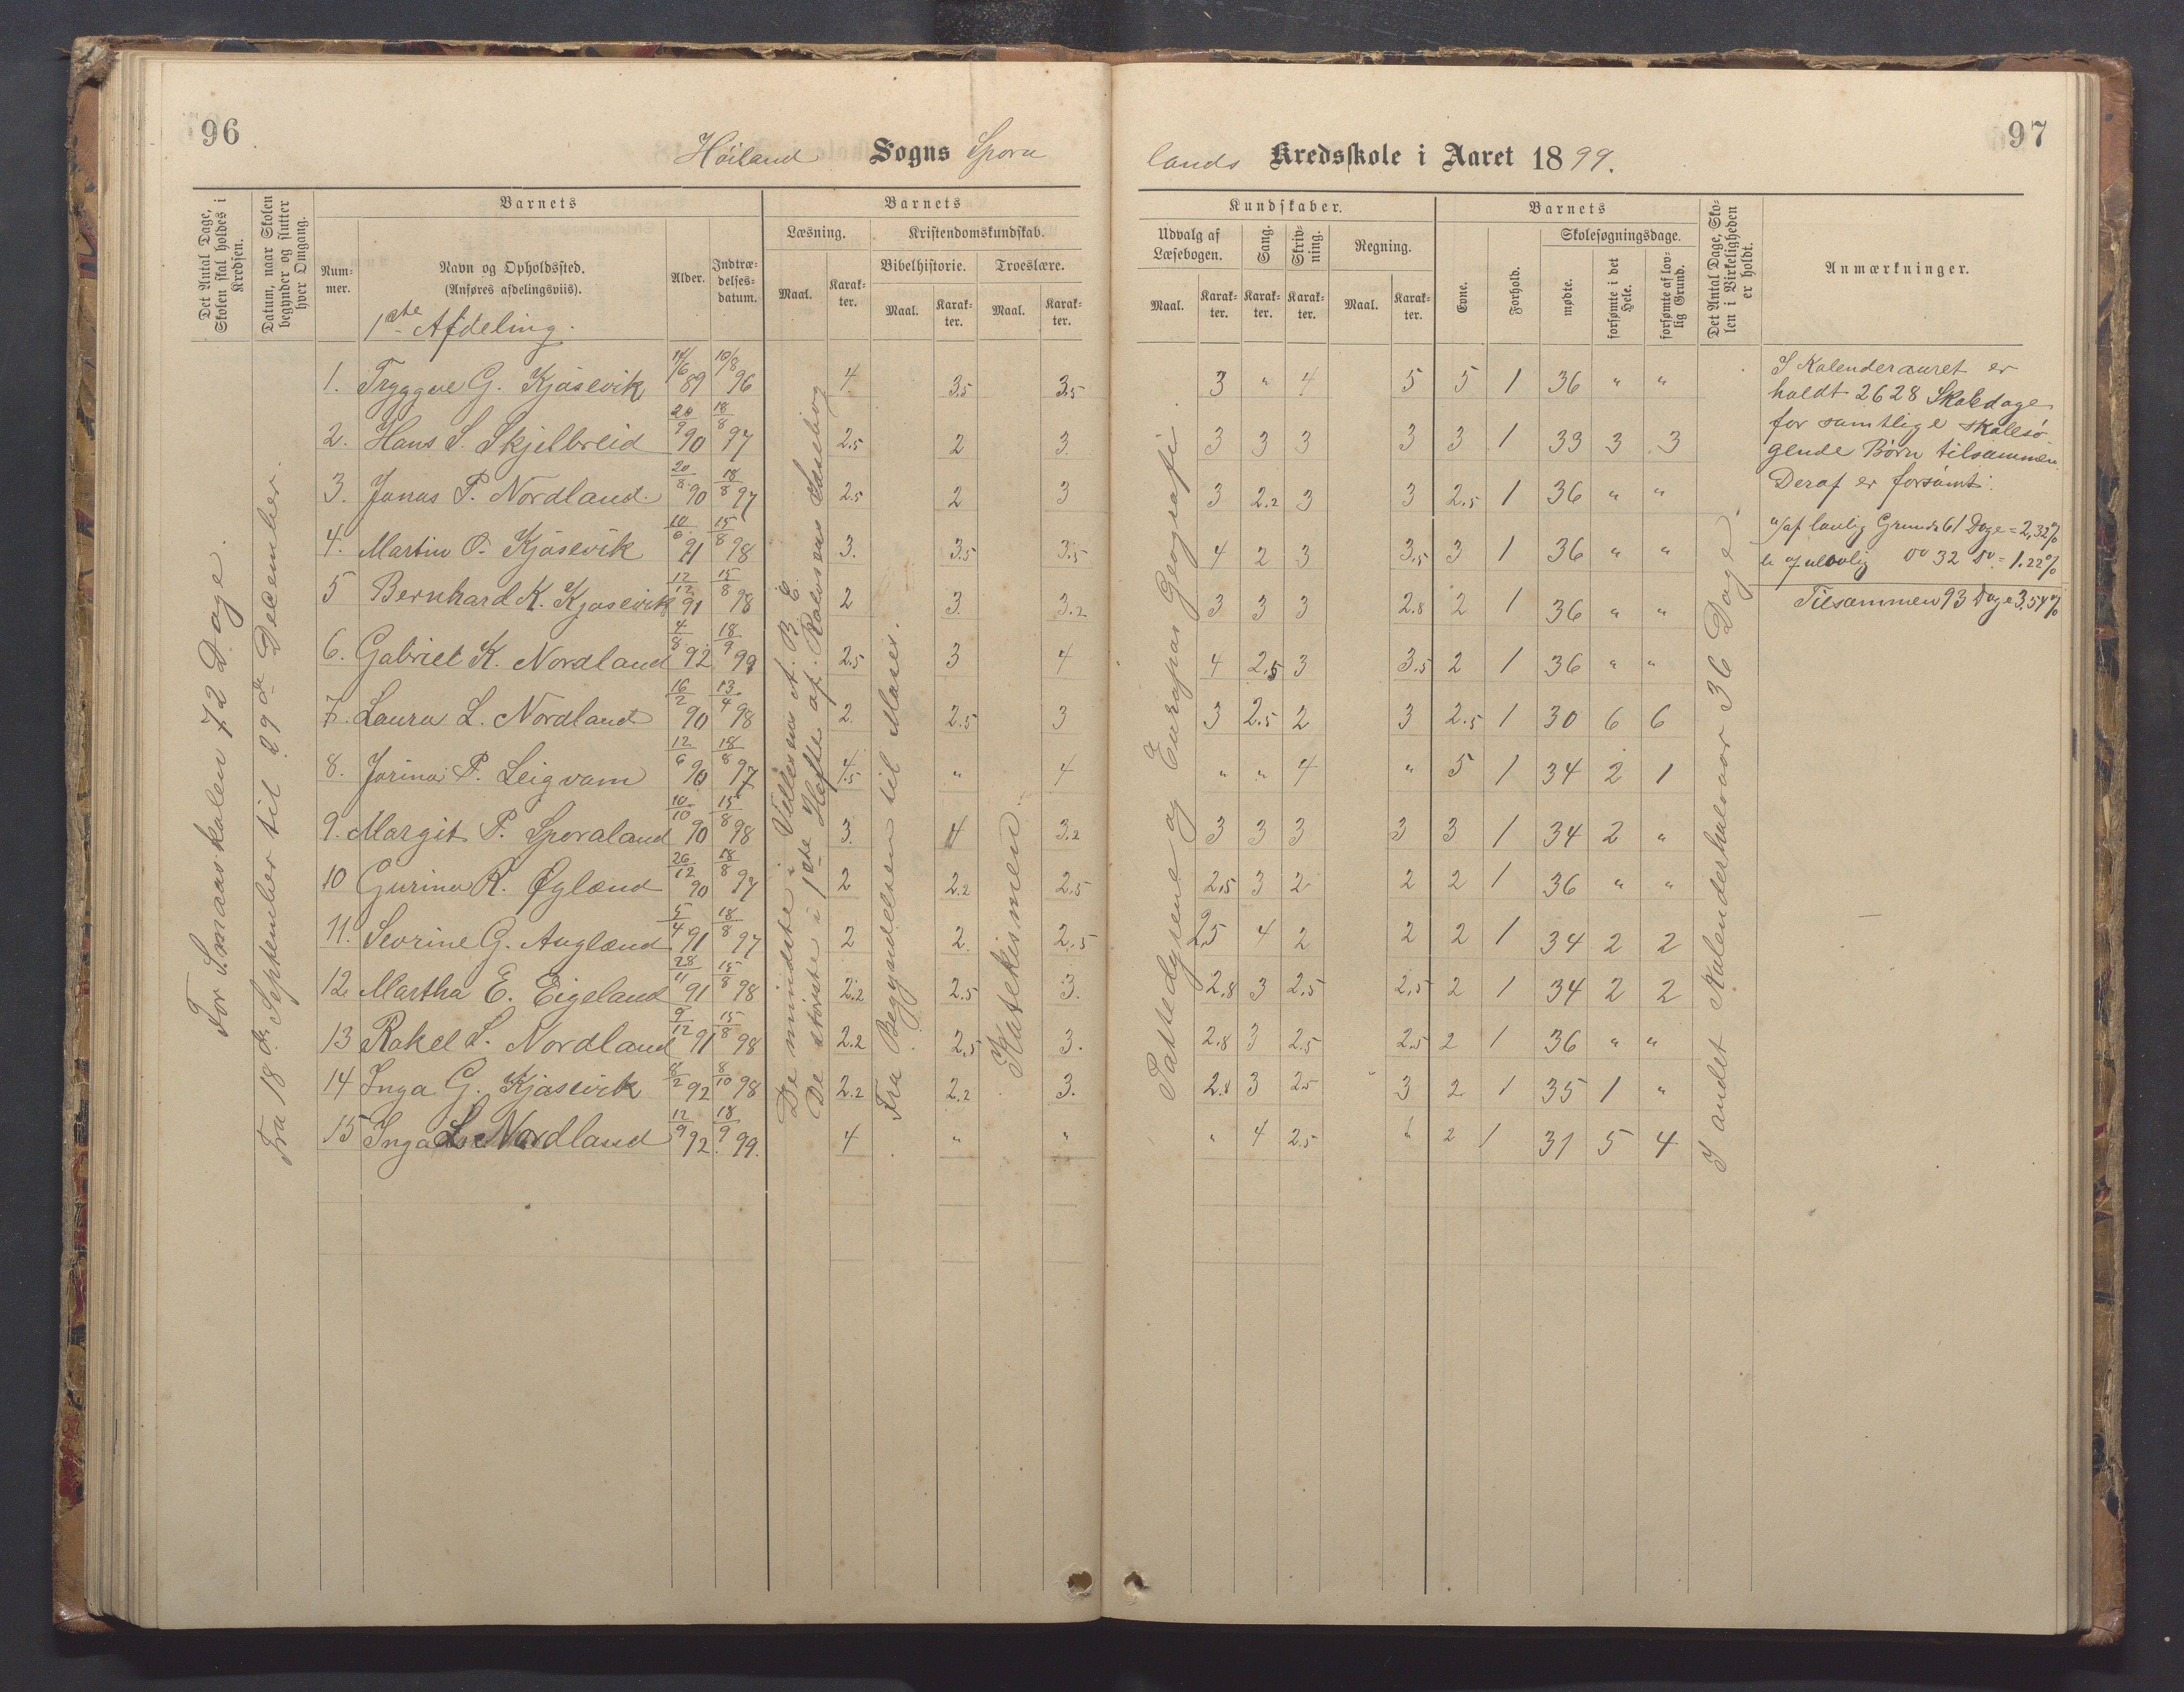 96
Høiland Sogns Spora
Det Antal Dage, Skolen skal holdes i Kredsen.
Datum, naar Skolen begynder og slutter hver Omgang.
Barnets
Num-mer.
Navn og Opholdssted.
(Anføres afdelingsviis).
1ste Afdeling.
Alder.
Indtræ-delses-datum.
Barnets
Læsning.
Maal.
Karak-ter.
Kristendomskundskab.
Bibelhistorie.
Maal.
Karak-ter.
Troeslære.
Maal.
Karak-ter.
For Smaaskolen 72 Dage.
Fra 18de September til 29de December.
De mindste i Vellesens A.B.C.
De største i 1ste Hefte af Rolvsens Læsebog
Fra Begyndelsen til Moses.
Katekismen.
1. Tryggve G. Kjøsevik 14/6 89 10/8 96 4 3.5 3.5
2. Hans S. Skjelbreid 20/9 90 18/8 97 2.5 2 3.
3. Jonas P. Nordland 20/8 90 18/8 97 2.5 2 3
4. Martin O. Kjøsevik 10/6 91 15/8 98 3. 3.5 3.5
5 Bernhard K. Kjøsevik 12/12 91 15/8 98 2 3. 3.2
6. Gabriel K. Nordland 4/8 92. 18/9 99 2.5 3 4
7. Laura L. Nordland 16/2 90 13/4 98 2. 2.5 3
8. Jorina P. Leigvam 12/6 90 18/8 97 4.5 " 4
9. Margit P. Sporaland 10/10 90 15/8 98 3. 4 3.2
10 Gurina R. Øglænd 26/12 90 18/8 97 2 2.2 2.5
11. Sevrine G. Auglænd 5/4 91 18/8 97 2 2. 2.5
12. Martha E. Eigeland 28/11 91 15/8 98 2.2 2.5 3.
13 Rakel L. Nordland 9/12 91 15/8 98 2.2 2.5 3.
14 Inga G. Kjøsevik 8/2 92 8/10 98 2.2 2.2 3.
15 Inga L. Nordland 12/9 92. 18/9 99. 4 " "
97
lands Kredsskole i Aaret 1899.
Kundskaber.
Udvalg af Læsebogen.
Maal.
Karak-ter.
Sang.
Karak-ter.
Skriv-ning.
Karak-ter.
Regning.
Maal.
Karak-ter.
Barnets
Evne.
Forhold.
Skolesøgningsdage.
mødte.
forsømte i det Hele.
forsømte af lov-lig Grund.
Det Antal Dage, Sko-len i Virkeligheden er holdt.
Anmærkninger.
Pattedyrene og Europas Geografi.
I andet Kalenderhalvaar 36 Dage.
3 " 4 5 5 1 36 " "
3 3 3 3 3 1 33 3 3
3 2.2 3 3 2.5 1 36 " "
4 2 3 3.5 3 1 36 " "
3 3 3 2.8 2 1 36 " "
4 2.5 3 3.5 2 1 36 " "
3 2.5 2 3 2.5 1 30 6 6
" " 4 " 5 1 34 2 1
3 3 3 3 3 1 34 2 "
2.5 3 2 2 2 1 36 " "
2.5 4 2 2 2 1 34 2 2
2.8 3 2.5 2.5 2 1 34 2 2
2.8 3 2.5 2.5 2 1 36 " "
2.8 3 2.5 3 2 1 35 1 "
" 4 2.5 " 2 1 31 5 4
I Kalenderaaret er
holdt 2628 Skoledage
for samtlige skolesø-
gende Børn tilsammen.
Deraf er forsømt:
a/ af lovlig Grund 61 Dage = 2,32%
b af ulovlig do 32 do = 1.22%
Tilsammen 93 Dage 3,54%